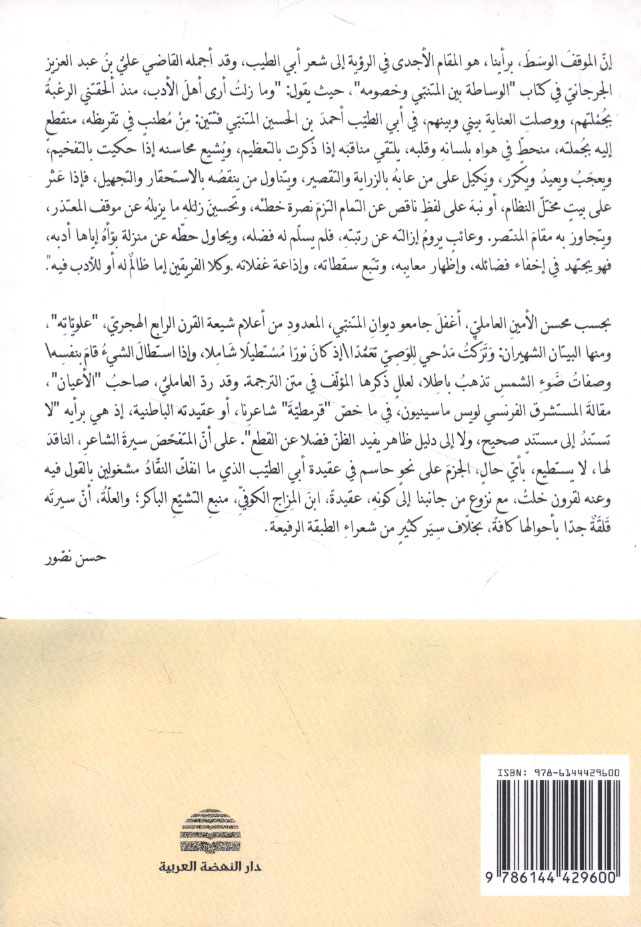 إنّ الموقفَ الوسَطَ، برأينا، هو المقام الأجدى في الرؤية إلى شعر أبي الطيب، وقد أجمله القاضي عليُّ بنُ عبد العزيز
الجرجانيّ في كتاب "الوساطة بين المتنبّي وخصومه"، حيث يقول: "وما زلتُ أرى أهلَ الأدب، منذ ألحقتني الرغبةُ
بجُملتهم، ووصلت العناية بيني وبينهم، في أبي الطيّب أحمدَ بن الحسين المتنبّي فئتين: مِنْ مُطنبٍ في تقريظه، منقطعٍ
إليه بجملته، منحطٍّ في هواه بلسانه وقلبه، يلتقي مناقبَه إذا ذُكرت بالتعظيم، ويُشيع محاسنه إذا حكيت بالتفخيم،
ويعجَبُ ويعيدُ ويكرّر، ويَميلُ على من عابه بالزراية والتقصير، ويتناول من ينقصُه بالاستحقار والتجهيل، فإذا عَثر
على بيتٍ مختلّ النظام، أو نبهَ على لفظٍ ناقص عن التمام التزمَ نصرة خطئه، وتحسينَ زللهِ ما يزيلهُ عن موقف المعتذر،
ويتجاوز به مقامَ المنتصر. وعائبٍ يرومُ إزالته عن رتبته، فلم يسلّم له فضله، ويحاول حطّه عن منزلة بوّأهُ إياها أدبه،
فهو يجتهد في إخفاء فضائله، وإظهار معايبه، وتتبّع سقطاته، وإذاعة غفلاته .وكلا الفريقين إما ظالمٌ له أو للأدب فيه".
بحسب محسن الأمينِ العامليّ، أغفلَ جامعو ديوانِ المتنبّي، المعدودِ من أعلام شيعة القرن الرابع الهجريّ، "علويّاتِه"،
ومنها البيتان الشهيران: وَتَركتُ مَدْحي لِلوَصِيّ تَعَمُّدًا\إذ كانَ نورًا مُسْتطيلًا شامِلا، وإذا استَطالَ الشيءُ قامَ بنفسِه\
وصفاتُ ضَوءِ الشمسِ تذهبُ باطِلا، لعللٍ ذكرها المؤلّف في متن الترجمة. وقد ردّ العامليّ، صاحبُ "الأعيان"،
مقالةَ المستشرق الفرنسي لويس ماسينيون، في ما خصّ "قرمطيّة" شاعرنا، أو عقيدته الباطنية، إذ هي برأيه "لا
تستندُ إلى مستندٍ صحيح، ولا إلى دليل ظاهر يفيد الظنّ فضلا عن القطع". على أنّ المتفحّصَ سيرةَ الشاعرِ، الناقدَ
لها، لا يستطيع، بأيّ حالٍ، الجزمَ على نحوٍ حاسم في عقيدة أبي الطيّب الذي ما انفكّ النقّادُ مشغولين بالقول فيه
وعنه لقرون خلتْ، مع نزوع من جانبنا إلى كونِه، عقيدةً، ابنَ المِزاج الكوفيّ، منبعِ التشيّعِ الباكر؛ والعلّةُ، أنّ سيرتَه
قَلقةٌ جدًا بأحوالها كافة، بخلافِ سِيَرِ كثيرٍ من شعراءِ الطبقة الرفيعة.
حسن نصّور
ISBN: 978-6144429600
9 786144 429600
دار النهضة العربية